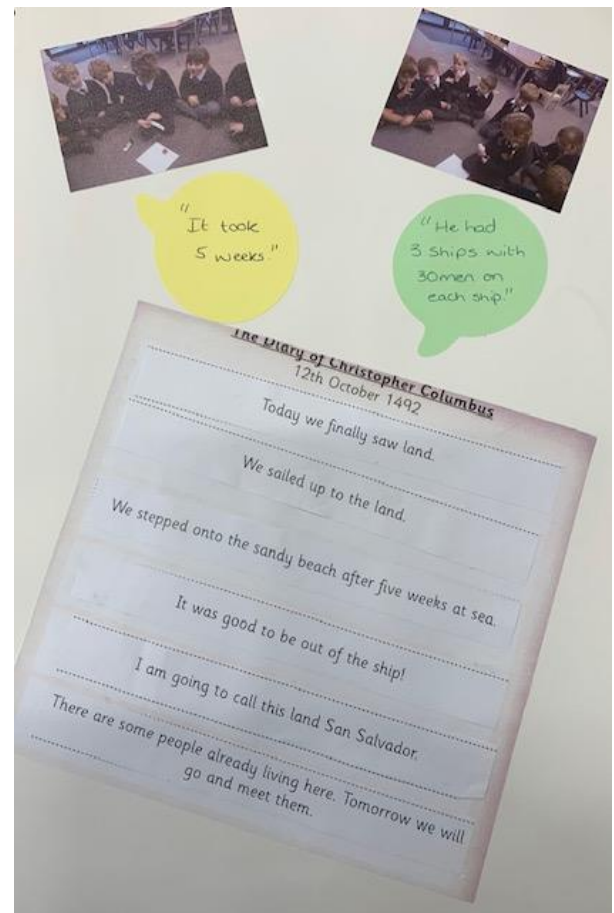 "It took
5 weeks."
"He had
3 ships with
30men on
each ship."
The Diary of Christopher Columbus
12th October 1492
Today we finally saw land.
We sailed up to the land.
We stepped onto the sandy beach after five weeks at sea.
It was good to be out of the ship!
I am going to call this land San Salvador.
There are some people already living here. Tomorrow we will
go and meet them.